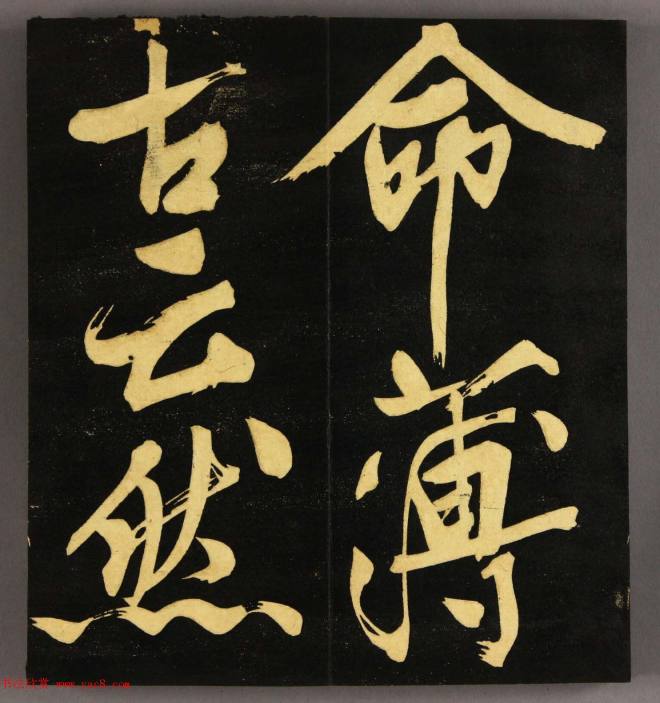 命薄
古云然
书法欣赏 www.yac8.com